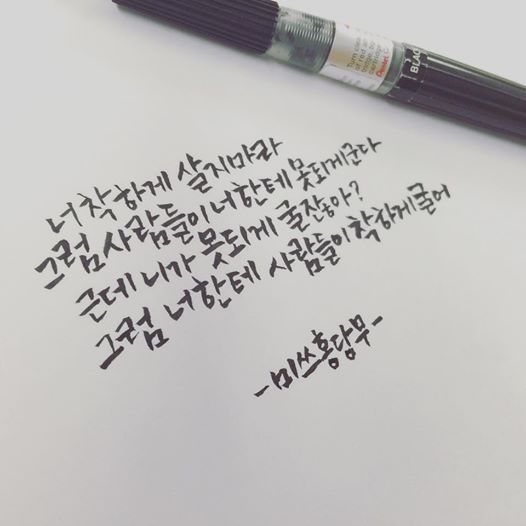 너 착하게 살지마라
그럼 사람들이 너한테 못되게군다
근데 니가 못되게 굴잖아?
그럼 너한테 사람들이 착하게굴어
-미쓰홍당무-
Pentel
BLAC